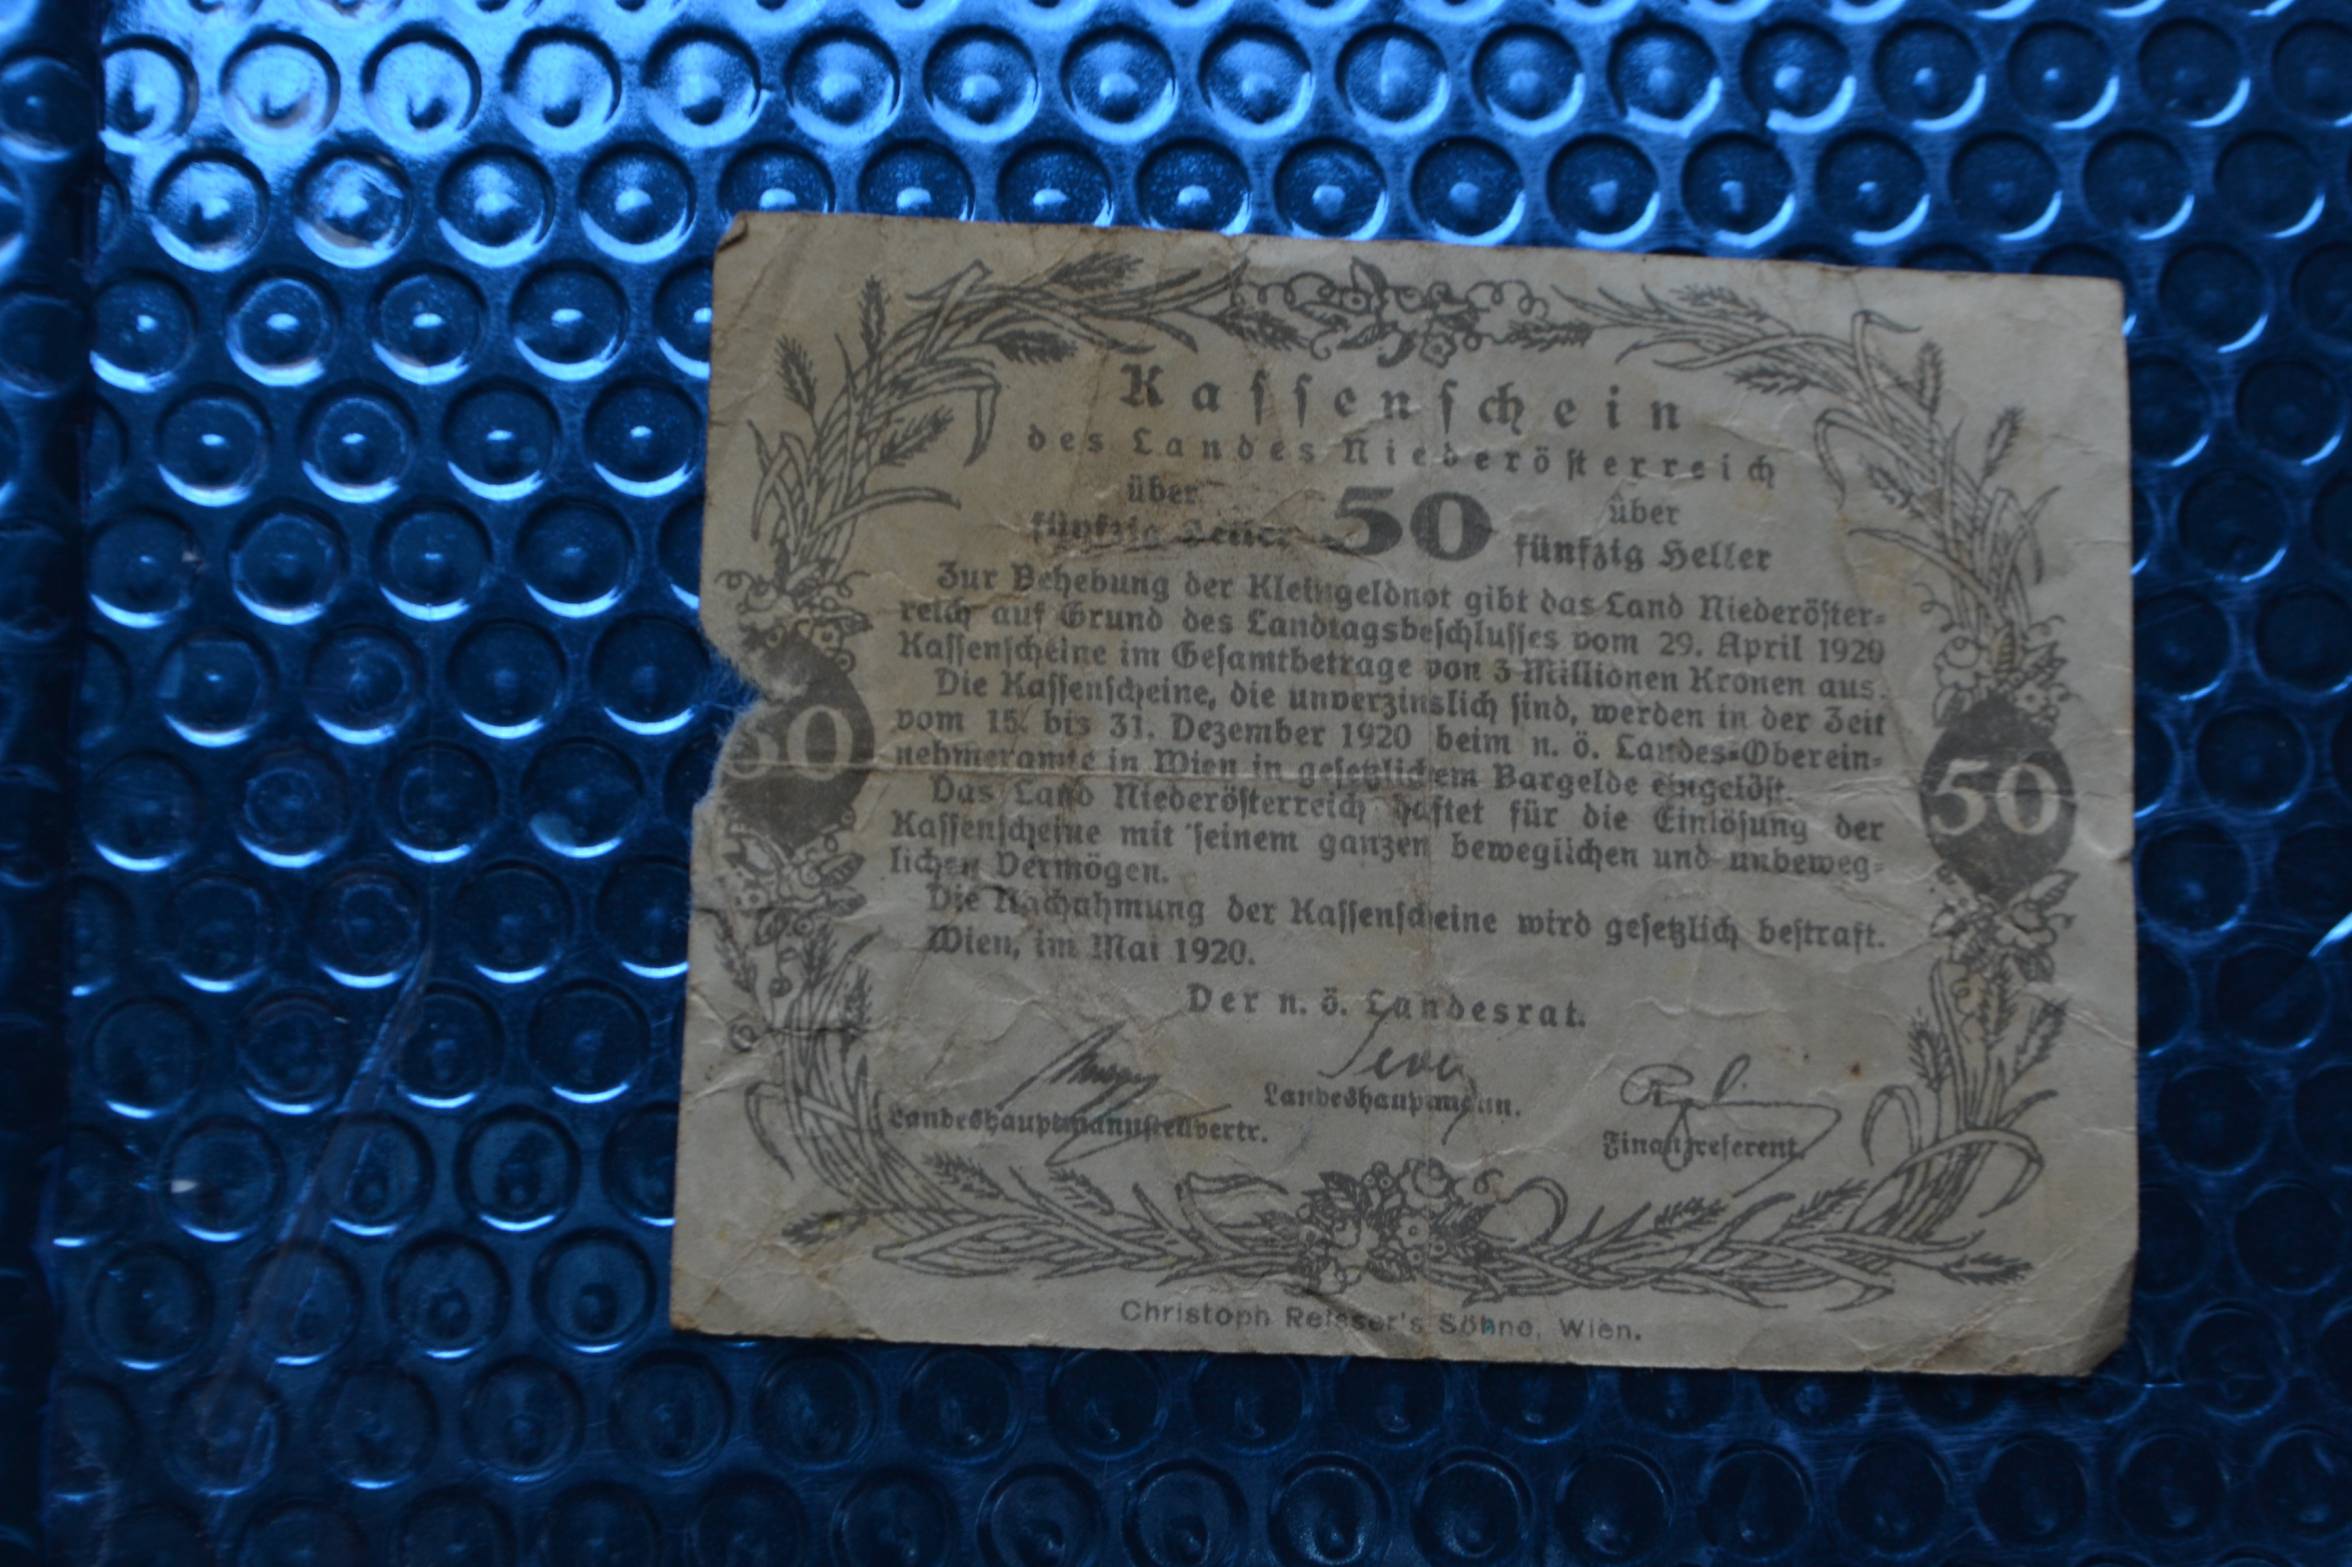 Kassenschein
des Landes Niederösterreich
über 50 über
fünfzig Heller fünfzig Heller
Zur Behebung der Kleingeldnot gibt das Land Niederöster-
reich auf Grund des Landtagsbeschlusses vom 29. April 1920
Kassenscheine im Gesamtbetrage von 3 Millionen Kronen aus.
Die Kassenscheine, die unverzinslich sind, werden in der Zeit
vom 15. bis 31. Dezember 1920 beim n. ö. Landes-Oberein-
nehmeramte in Wien in gesetzlichem Bargelde eingelöst.
Das Land Niederösterreich haftet für die Einlösung der
Kassenscheine mit seinem ganzen beweglichen und unbeweg-
lichen Vermögen.
50
50
Die Nachahmung der Kassenscheine wird gesetzlich bestraft.
Wien, im Mai 1920.
Der n. ö. Landesrat.
Landeshauptmannstellvertr.
Landeshauptmann.
Finanzreferent.
Christoph Reisser's Söhne, Wien.